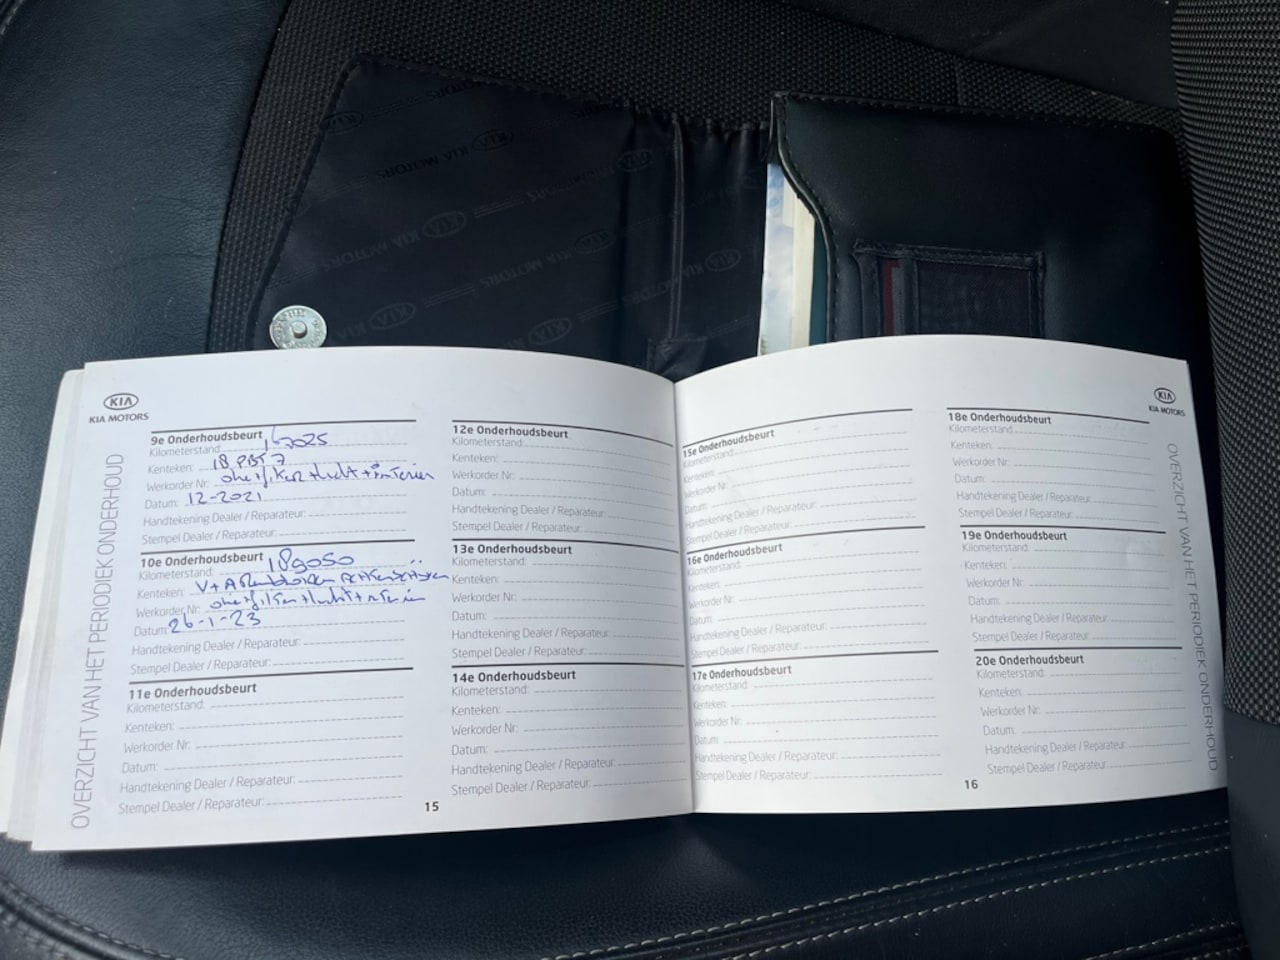 KIA
KIA MOTORS
OVERZICHT VAN HET PERIODIEK ONDERHOUD
9e Onderhoudsbeurt
Kilometerstand:
Kenteken:
Werkorder Nr:
Datum: 12-2021
Handtekening Dealer / Reparateur:
Stempel Dealer / Reparateur:
10e Onderhoudsbeurt
Kilometerstand: 189050
Kenteken: V+A
Werkorder Nr:
Datum: 26-1-23
Handtekening Dealer / Reparateur:
Stempel Dealer / Reparateur:
11e Onderhoudsbeurt
Kilometerstand:
Kenteken:
Werkorder Nr:
Datum:
Handtekening Dealer / Reparateur:
Stempel Dealer / Reparateur:
12e Onderhoudsbeurt
Kilometerstand:
Kenteken:
Werkorder Nr:
Datum:
Handtekening Dealer / Reparateur:
Stempel Dealer / Reparateur:
13e Onderhoudsbeurt
Kilometerstand:
Kenteken:
Werkorder Nr:
Datum:
Handtekening Dealer / Reparateur:
Stempel Dealer / Reparateur:
14e Onderhoudsbeurt
Kilometerstand:
Kenteken:
Werkorder Nr:
Datum:
Handtekening Dealer / Reparateur:
Stempel Dealer / Reparateur:
15
15e Onderhoudsbeurt
Kilometerstand:
Kenteken:
Werkorder Nr:
Datum:
Handtekening Dealer / Reparateur:
Stempel Dealer / Reparateur:
16e Onderhoudsbeurt
Kilometerstand:
Kenteken:
Werkorder Nr:
Datum:
Handtekening Dealer / Reparateur:
Stempel Dealer / Reparateur:
17e Onderhoudsbeurt
Kilometerstand:
Kenteken:
Werkorder Nr:
Datum:
Handtekening Dealer / Reparateur:
Stempel Dealer / Reparateur:
18e Onderhoudsbeurt
Kilometerstand:
Kenteken:
Werkorder Nr:
Datum:
Handtekening Dealer / Reparateur:
Stempel Dealer / Reparateur:
19e Onderhoudsbeurt
Kilometerstand:
Kenteken:
Werkorder Nr:
Datum:
Handtekening Dealer / Reparateur:
Stempel Dealer / Reparateur:
20e Onderhoudsbeurt
Kilometerstand:
Kenteken:
Werkorder Nr:
Datum:
Handtekening Dealer / Reparateur:
Stempel Dealer / Reparateur:
16
KIA
KIA MOTORS
OVERZICHT VAN HET PERIODIEK ONDERHOUD
KIA MOTORS